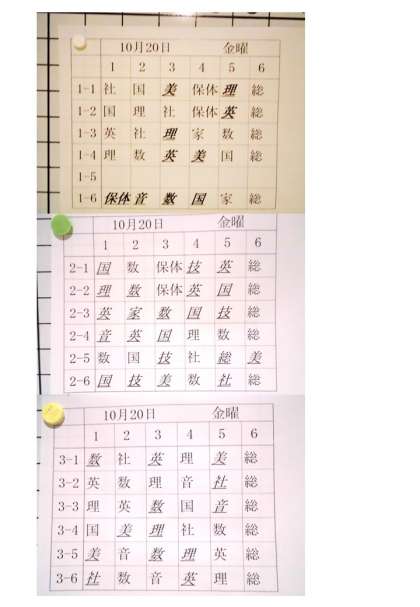 10月20日 金曜
1 2 3 4 5 6
1-1 社 国 美 保体 理 総
1-2 国 理 社 保体 英 総
1-3 英 社 理 家 数 総
1-4 理 数 英 美 国 総
1-5
1-6 保体 音 数 国 家 総
10月20日 金曜
1 2 3 4 5 6
2-1 国 数 保体 技 英 総
2-2 理 数 保体 英 国 総
2-3 英 家 数 国 技 総
2-4 音 英 国 理 数 総
2-5 数 国 技 社 総 美
2-6 国 技 美 数 社 総
10月20日 金曜
1 2 3 4 5 6
3-1 数 社 英 理 美 総
3-2 英 数 理 音 社 総
3-3 理 英 数 国 音 総
3-4 国 美 理 社 数 総
3-5 美 音 数 理 英 総
3-6 社 数 音 英 理 総